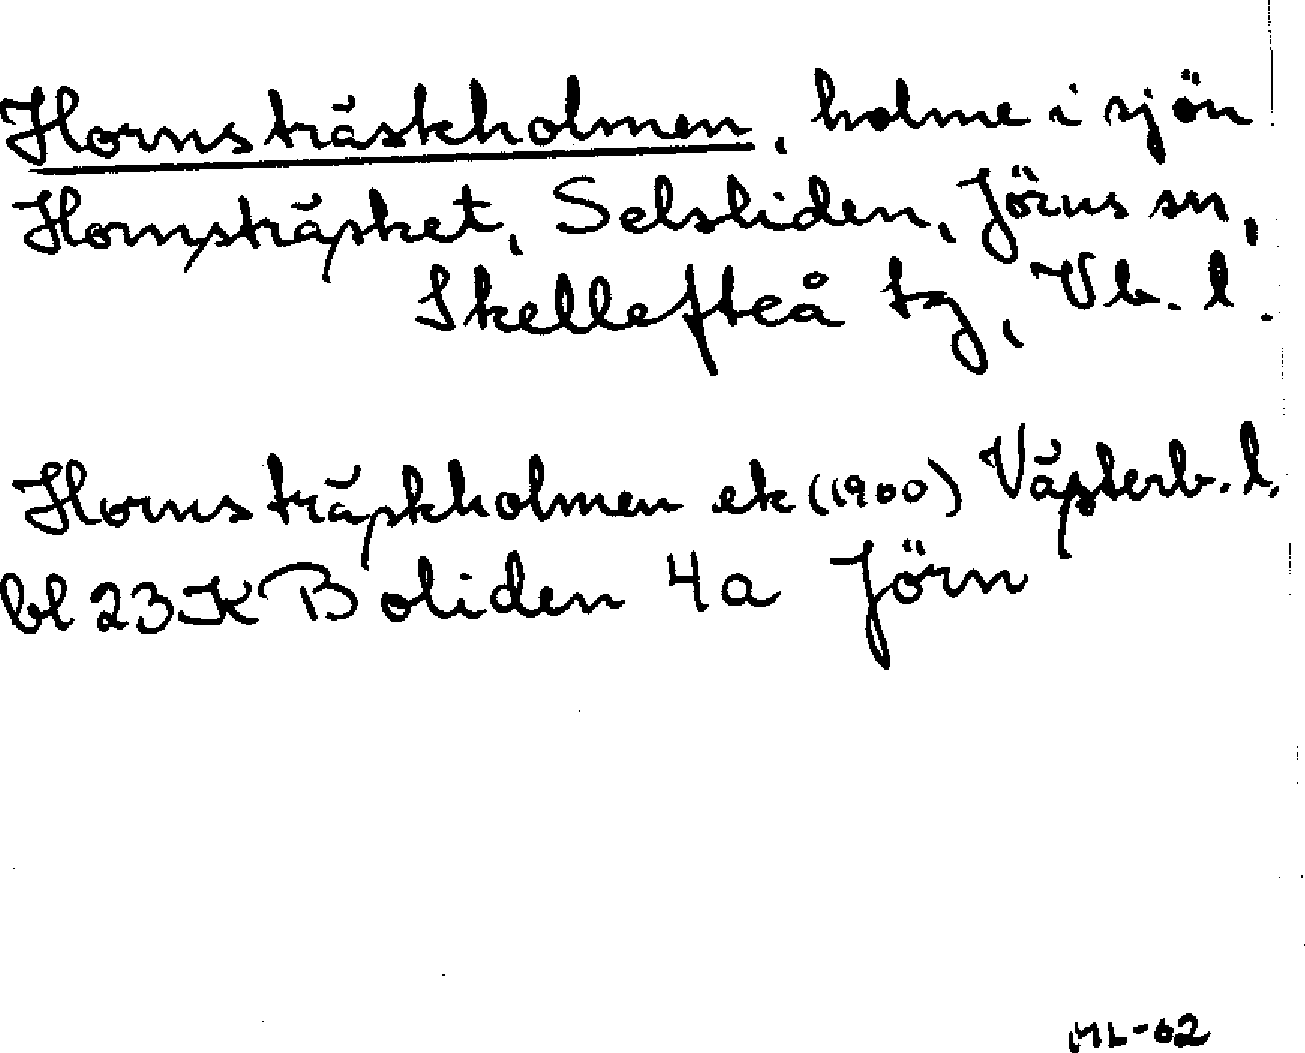 Hornsträskholmen, holme i sjön
Hornsträsket, Selsliden, Jörns sn,
Skellefteå tg, Vb. l.
Hornsträskholmen ek (1900) Västerb. l.
bl 23K Boliden 4a Jörn
ML-62